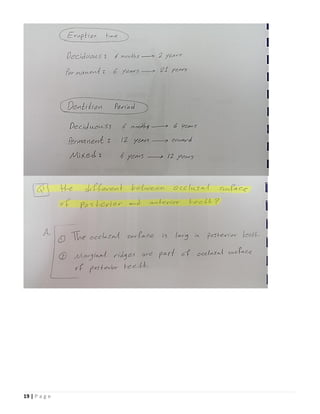 Eruption time
Deciduous: 6 months → 2 years
Permanent: 6 years → 21 years
Dentition Period
Deciduous: 6 months → 6 years
Permanent: 12 years → onward
Mixed: 6 years → 12 years
Q: the different between occlusal surface
of posterior and anterior teeth?
A.
① The occlusal surface is larg in posterior teeth.
② Marginal ridges are part of occlusal surface
of posterior teeth.
19 | P a g e